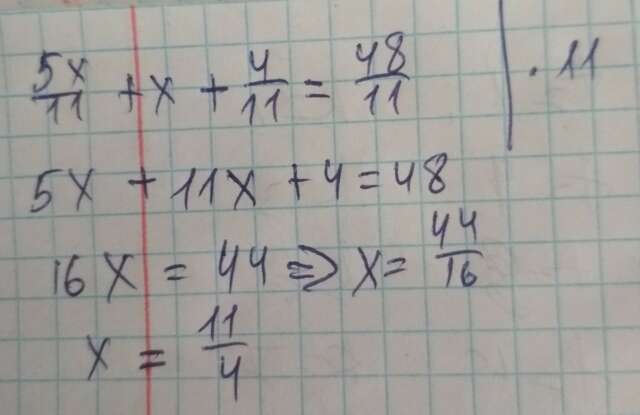 5x/11 + x + 4/11 = 48/11 | · 11
5x + 11x + 4 = 48
16x = 44 => x = 44/16
x = 11/4